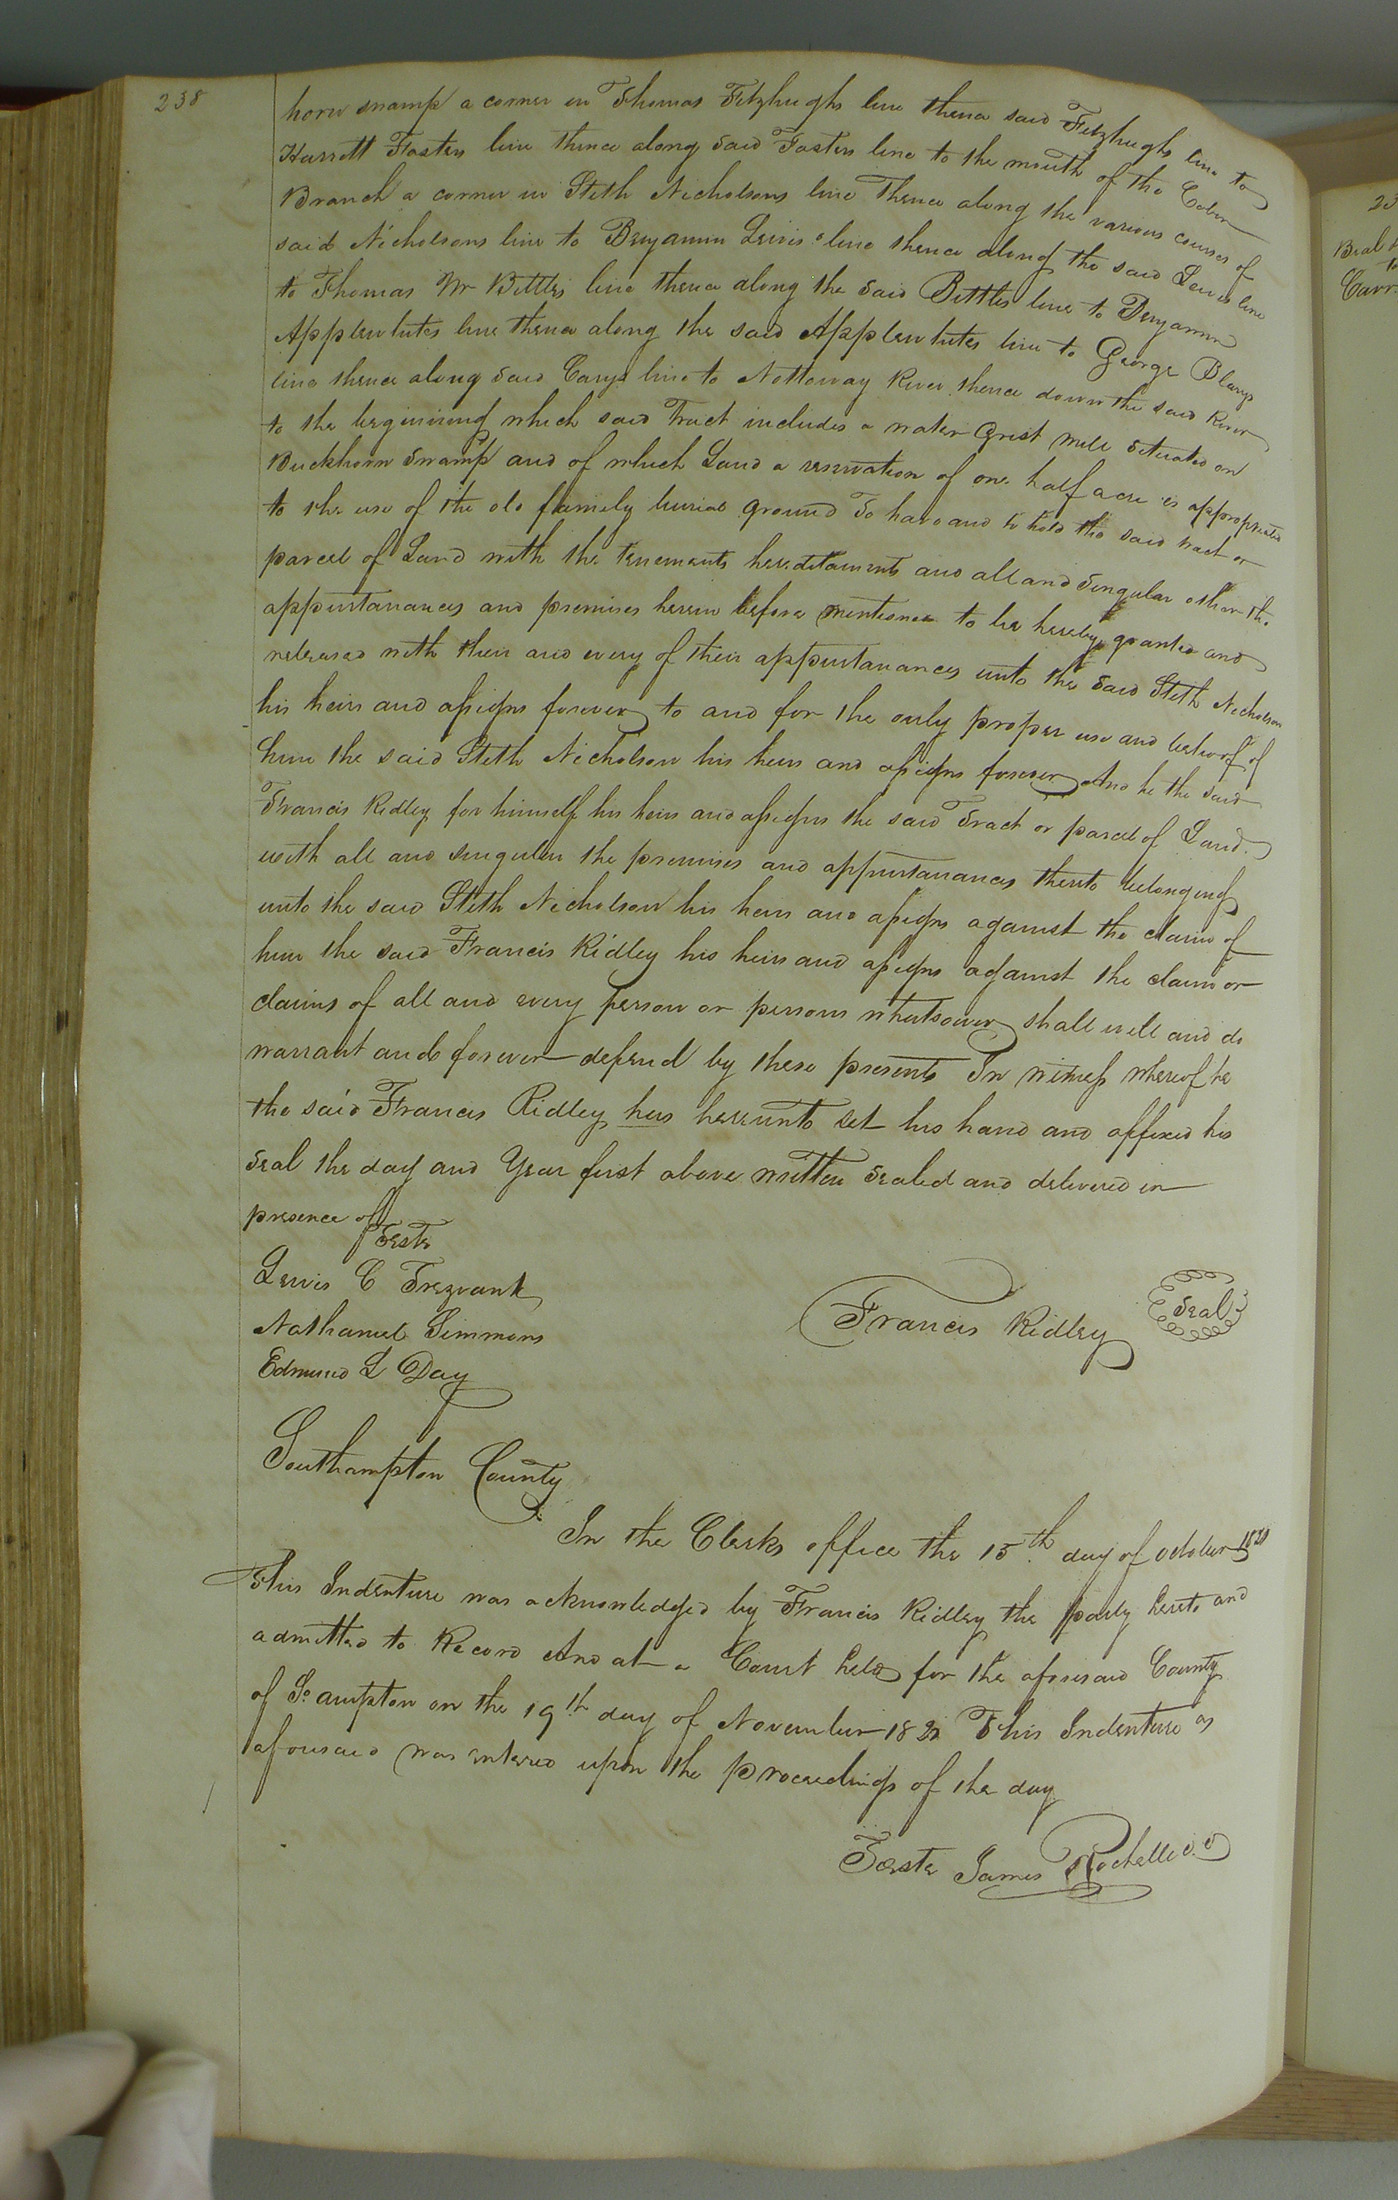 238
horn swamp a corner in Thomas Fitzhughs line thence said Fitzhughs line to
Harrott Fosters line thence along said Fosters line to the mouth of the Cabin
Branch a corner in Steth Nicholsons line Thence along the various courses of
said Nicholsons line to Benjamin Lewis's line thence along the said Lewis line
to Thomas Mr Bittles line thence along the said Bittles line to Benjamin
Applewhites line thence along the said Applewhites line to George Blows
line thence along said Carys line to Nottoway River thence down the said River
to the beginning which said Tract includes a water Grist mill situated on
Buckhorn Swamp and of which Land a reservation of one half acre is appropriated
to the use of the old family burial ground To have and to hold the said tract or
parcel of Land with the tenements hereditaments and all and Singular other the
appurtanances and premises herein before mentioned to be hereby granted and
released with their and every of their appurtanances unto the said Steth Nicholson
his heirs and assigns forever to and for the only proper use and behoof of
him the said Steth Nicholson his heirs and assigns forever And he the said
Francis Ridley for himself his heirs and assigns the said Tract or parcel of Land
with all and singular the premises and appurtanances thereto belonging
unto the said Steth Nicholson his heirs and assigns against the claim of
him the said Francis Ridley his heirs and assigns against the claim or
claims of all and every person or persons whatsoever shall will and do
warrant and forever defend by these presents In witness whereof he
the said Francis Ridley has hereunto set his hand and affixed his
seal the day and Year first above written Sealed and delivered in
presence of
Teste
Lewis C Trezvant
Nathaniel Simmons
Edmund L Day
Francis Ridley
Seal
Southampton County
In the Clerks office the 15th day of October 1821
This Indenture was acknowledged by Francis Ridley the party hereto and
admitted to Record And at a Court held for the aforesaid County
of So ampton on the 19th day of November 1821 This Indenture as
aforesaid was entered upon the proceedings of the day
Teste James Rochelle
Beal
to
Carr